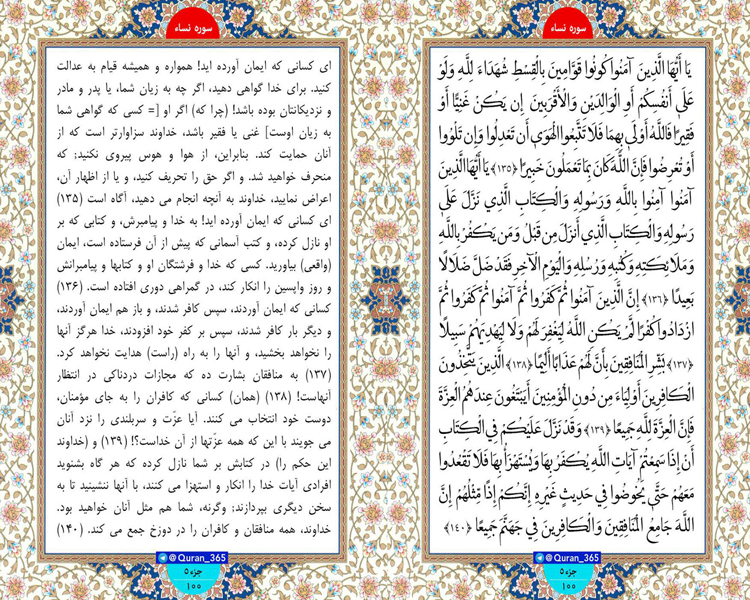 سوره نساء
يَا أَيُّهَا الَّذِينَ آمَنُوا كُونُوا قَوَّامِينَ بِالْقِسْطِ شُهَدَاءَ لِلَّهِ وَلَوْ
عَلَىٰ أَنْفُسِكُمْ أَوِ الْوَالِدَيْنِ وَالْأَقْرَبِينَ إِن يَكُنْ غَنِيًّا أَوْ
فَقِيرًا فَاللَّهُ أَوْلَىٰ بِهِمَا فَلَا تَتَّبِعُوا الْهَوَىٰ أَن تَعْدِلُوا وَإِن تَلْوُوا
أَوْ تُعْرِضُوا فَإِنَّ اللَّهَ كَانَ بِمَا تَعْمَلُونَ خَبِيرًا ﴿١٣٥﴾ يَا أَيُّهَا الَّذِينَ
آمَنُوا آمِنُوا بِاللَّهِ وَرَسُولِهِ وَالْكِتَابِ الَّذِي نَزَّلَ عَلَىٰ
رَسُولِهِ وَالْكِتَابِ الَّذِي أَنزَلَ مِن قَبْلُ وَمَن يَكْفُرْ بِاللَّهِ
وَمَلَائِكَتِهِ وَكُتُبِهِ وَرُسُلِهِ وَالْيَوْمِ الْآخِرِ فَقَدْ ضَلَّ ضَلَالًا
بَعِيدًا ﴿١٣٦﴾ إِنَّ الَّذِينَ آمَنُوا ثُمَّ كَفَرُوا ثُمَّ آمَنُوا ثُمَّ كَفَرُوا ثُمَّ
ازْدَادُوا كُفْرًا لَّمْ يَكُنِ اللَّهُ لِيَغْفِرَ لَهُمْ وَلَا لِيَهْدِيَهُمْ سَبِيلًا
﴿١٣٧﴾ بَشِّرِ الْمُنَافِقِينَ بِأَنَّ لَهُمْ عَذَابًا أَلِيمًا ﴿١٣٨﴾ الَّذِينَ يَتَّخِذُونَ
الْكَافِرِينَ أَوْلِيَاءَ مِن دُونِ الْمُؤْمِنِينَ أَيَبْتَغُونَ عِندَهُمُ الْعِزَّةَ
فَإِنَّ الْعِزَّةَ لِلَّهِ جَمِيعًا ﴿١٣٩﴾ وَقَدْ نَزَّلَ عَلَيْكُمْ فِي الْكِتَابِ
أَنْ إِذَا سَمِعْتُمْ آيَاتِ اللَّهِ يُكْفَرُ بِهَا وَيُسْتَهْزَأُ بِهَا فَلَا تَقْعُدُوا
مَعَهُمْ حَتَّىٰ يَخُوضُوا فِي حَدِيثٍ غَيْرِهِ إِنَّكُمْ إِذًا مِّثْلُهُمْ إِنَّ
اللَّهَ جَامِعُ الْمُنَافِقِينَ وَالْكَافِرِينَ فِي جَهَنَّمَ جَمِيعًا ﴿١٤٠﴾
@Quran_365
جزء ۵
۱۰۰
سوره نساء
ای کسانی که ایمان آورده اید! همواره و همیشه قیام به عدالت
کنید. برای خدا گواهی دهید، اگر چه به زیان شما، یا پدر و مادر
و نزدیکانتان بوده باشد! (چرا که) اگر او [= کسی که گواهی شما
به زیان اوست] غنی یا فقیر باشد، خداوند سزاوارتر است که از
آنان حمایت کند. بنابراین، از هوا و هوس پیروی نکنید؛ که
منحرف خواهید شد. و اگر حق را تحریف کنید، و یا از اظهار آن،
اعراض نمایید، خداوند به آنچه انجام می دهید، آگاه است (۱۳۵)
ای کسانی که ایمان آورده اید! به خدا و پیامبرش، و کتابی که بر
او نازل کرده، و کتب آسمانی که پیش از آن فرستاده است، ایمان
(واقعی) بیاورید. کسی که خدا و فرشتگان او و کتابها و پیامبرانش
و روز واپسین را انکار کند، در گمراهی دوری افتاده است. (۱۳۶)
کسانی که ایمان آوردند، سپس کافر شدند، و باز هم ایمان آوردند،
و دیگر بار کافر شدند، سپس بر کفر خود افزودند، خدا هرگز آنها
را نخواهد بخشید، و آنها را به راه (راست) هدایت نخواهد کرد.
(۱۳۷) به منافقان بشارت ده که مجازات دردناکی در انتظار
آنهاست! (۱۳۸) (همان) کسانی که کافران را به جای مؤمنان،
دوست خود انتخاب می کنند. آیا عزّت و سربلندی را نزد آنان
می جویند با این که همه عزّتها از آن خداست؟! (۱۳۹) و (خداوند
این حکم را) در کتابش بر شما نازل کرده که هر گاه بشنوید
افرادی آیات خدا را انکار و استهزا می کنند، با آنها ننشینید تا به
سخن دیگری بپردازند؛ وگرنه، شما هم مثل آنان خواهید بود.
خداوند، همه منافقان و کافران را در دوزخ جمع می کند. (۱۴۰)
@Quran_365
جزء ۵
۱۰۰